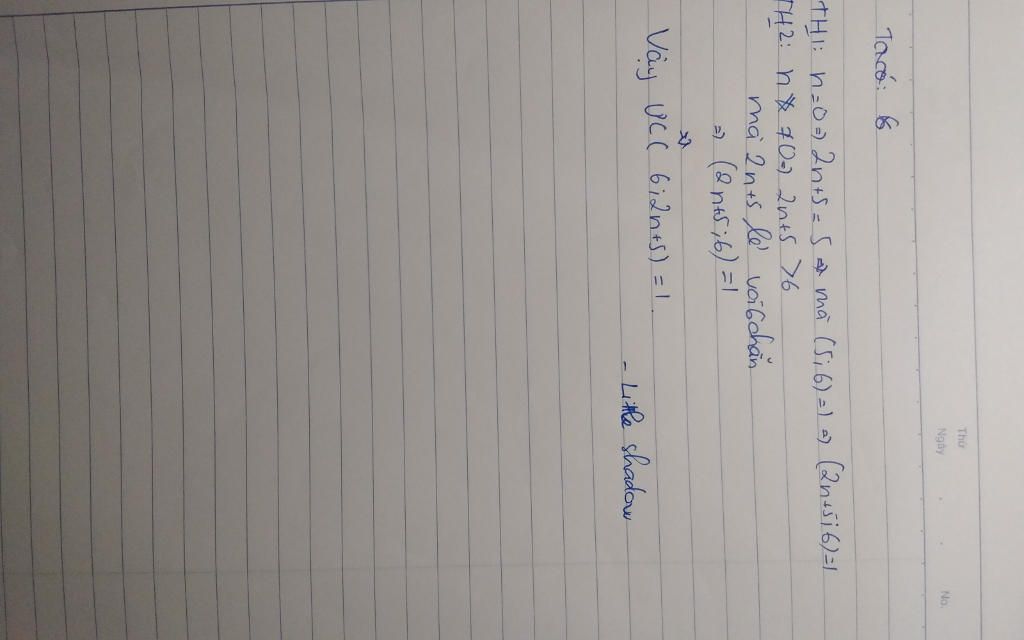 Thứ
Ngày
No.
Ta có: 6
TH1: n=0 => 2n+5 = 5 => mà (5;6)=1 => (2n+5;6)=1
TH2: n ≠ 0 => 2n+5 >6
mà 2n+5 lẻ với 6 chẵn
=> (2n+5;6)=1
Vậy ƯC( 6;2n+5)=1.
- Little shadow